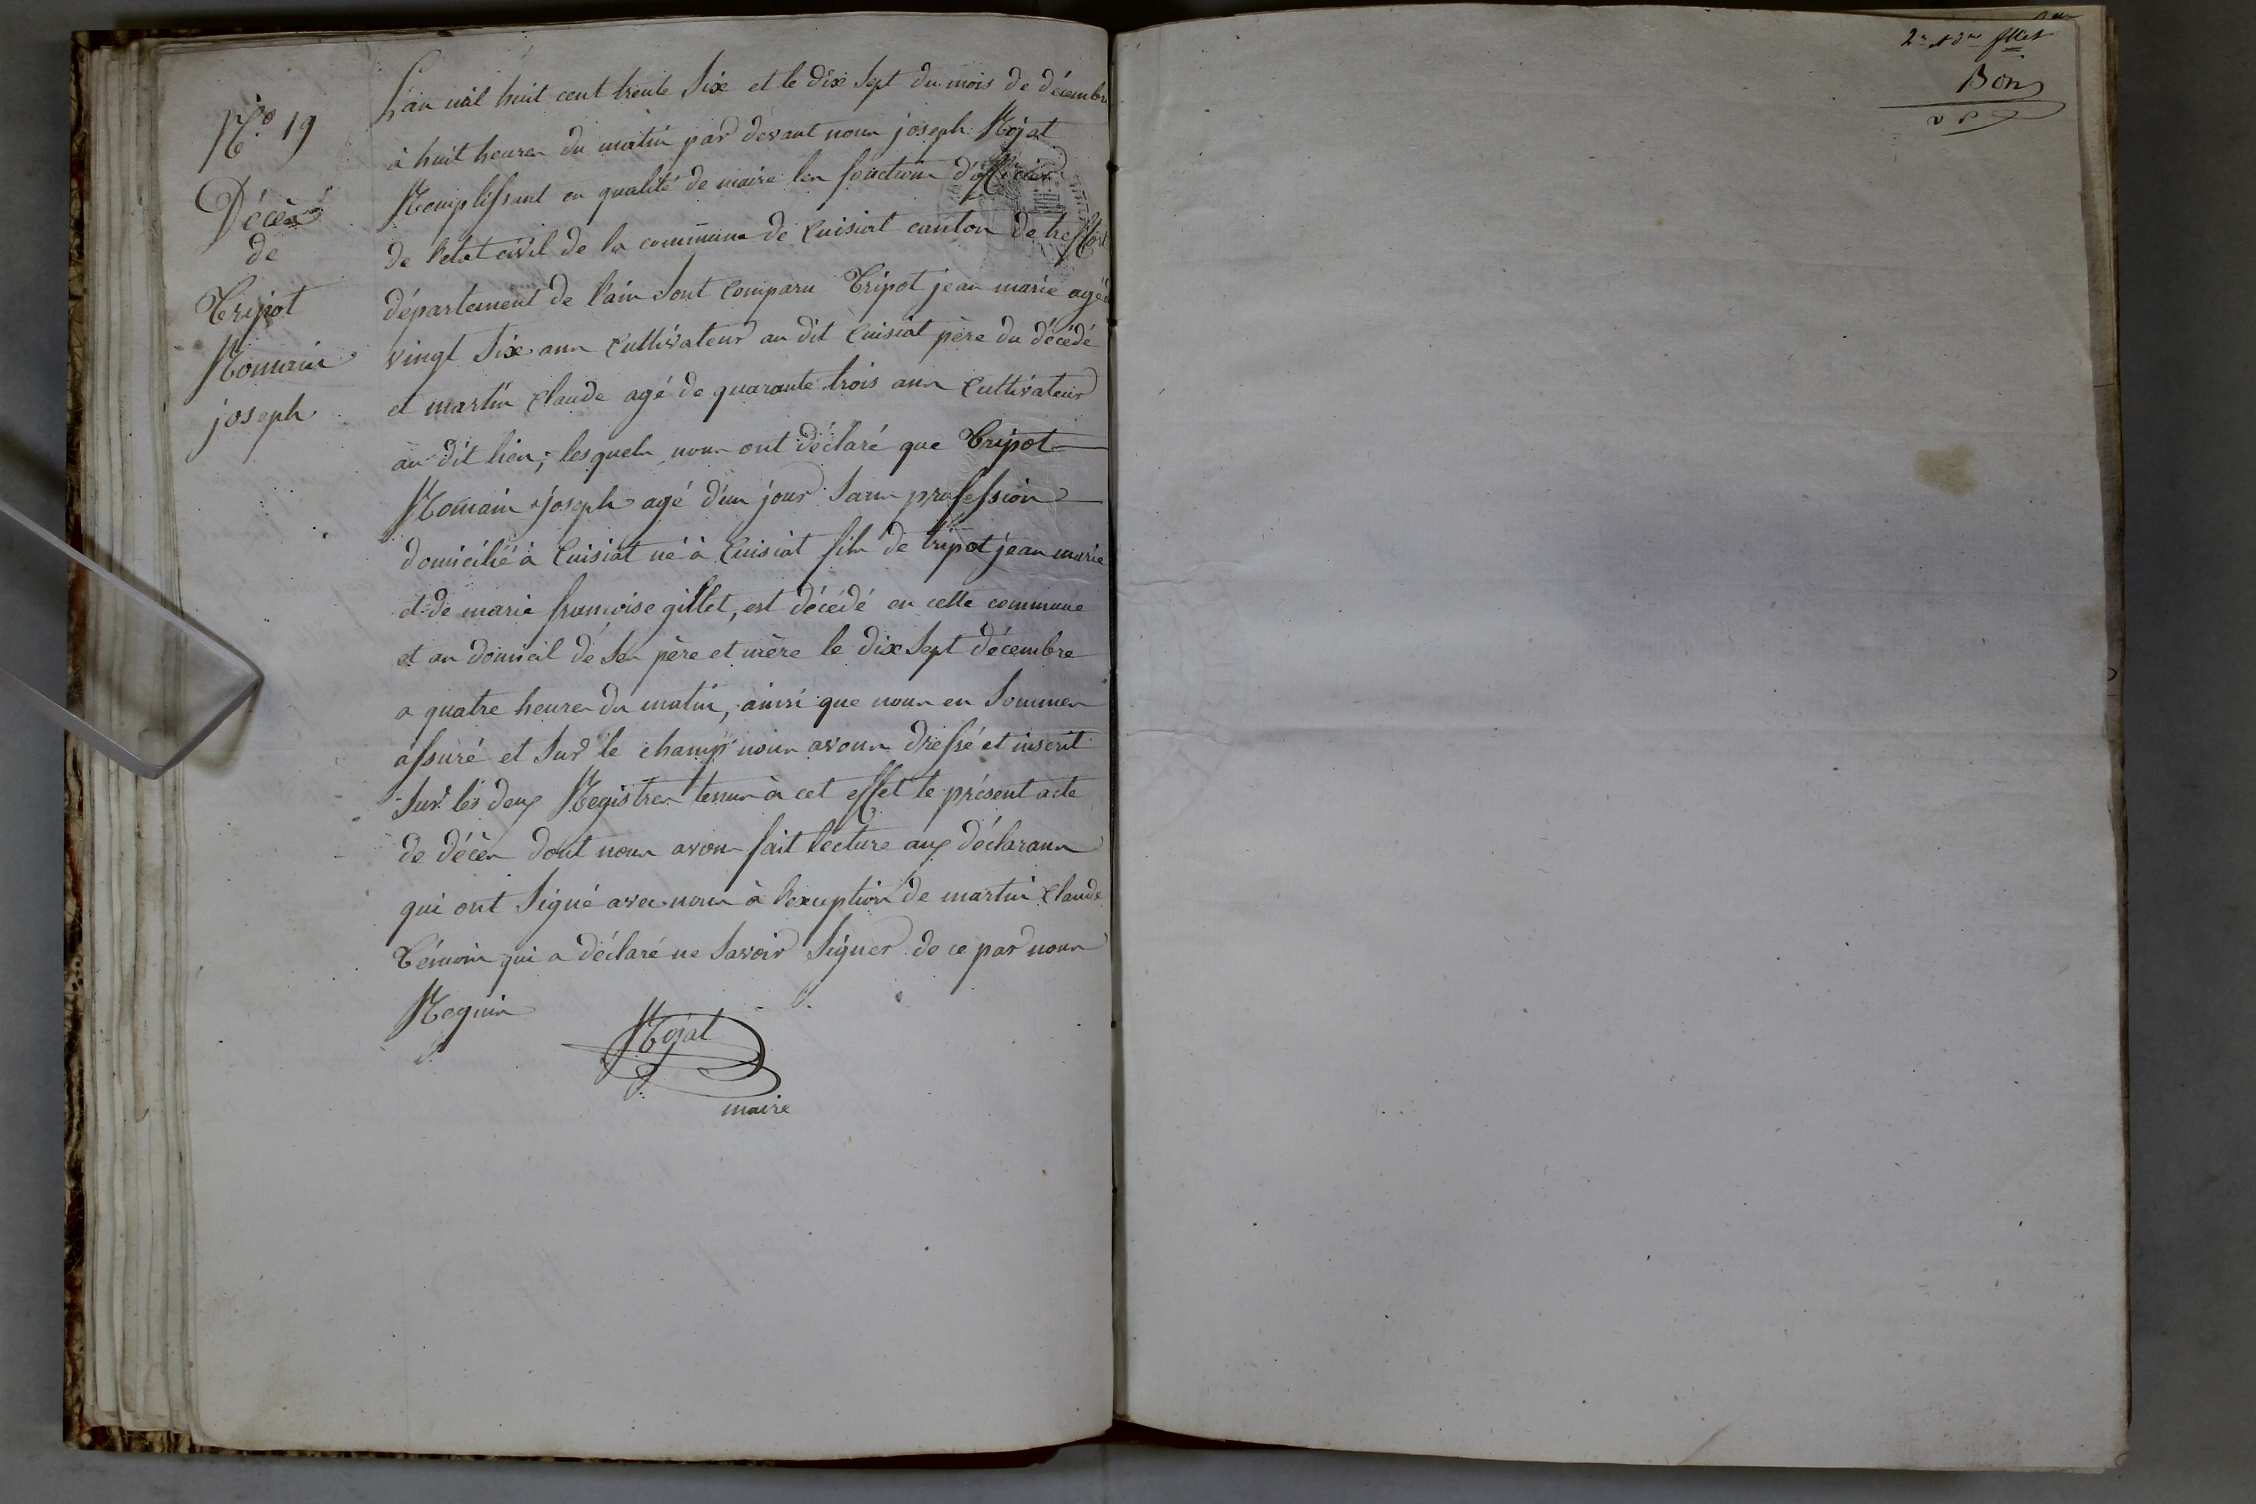 N.o 19
Décès
de
Tripot
Romain
joseph
L'an mil huit cent trente Six et le dix Sept du mois de décembre
à huit heures du matin par devant nous joseph Rojat
Remplissant en qualité de maire les fonctions d'officier
de l'etat civil de la commune de Cuisiat canton de treffort
département de l'ain Sont Comparu Tripot jean marie agé de
vingt Six ans Cultivateur au dit Cuisiat père du décédé
et martin Claude agé de quarante trois ans Cultivateur
au dit lieu; lesquels nous ont déclaré que Tripot
Romain joseph agé d'un jour Sans profession
domicilié à Cuisiat né à Cuisiat fils de tripot jean marie
et de marie francoise gillet, est décédé en cette commune
et au domicil de Ses père et mère le dix Sept décembre
a quatre heures du matin, ainsi que nous en Sommes
assuré et Sur le champ nous avons dressé et inscrit
Sur les deux Registres tenus à cet effet le présent acte
de décès dont nous avons fait lecture aux déclarans
qui ont Signé avec nous à l'exception de martin Claude
Témoin qui a déclaré ne Savoir Signer de ce par nous
Requis
Rojat
maire
Bon